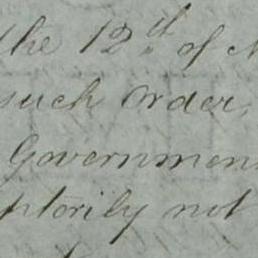 the 12th of
such Order,
Government
ptorily not